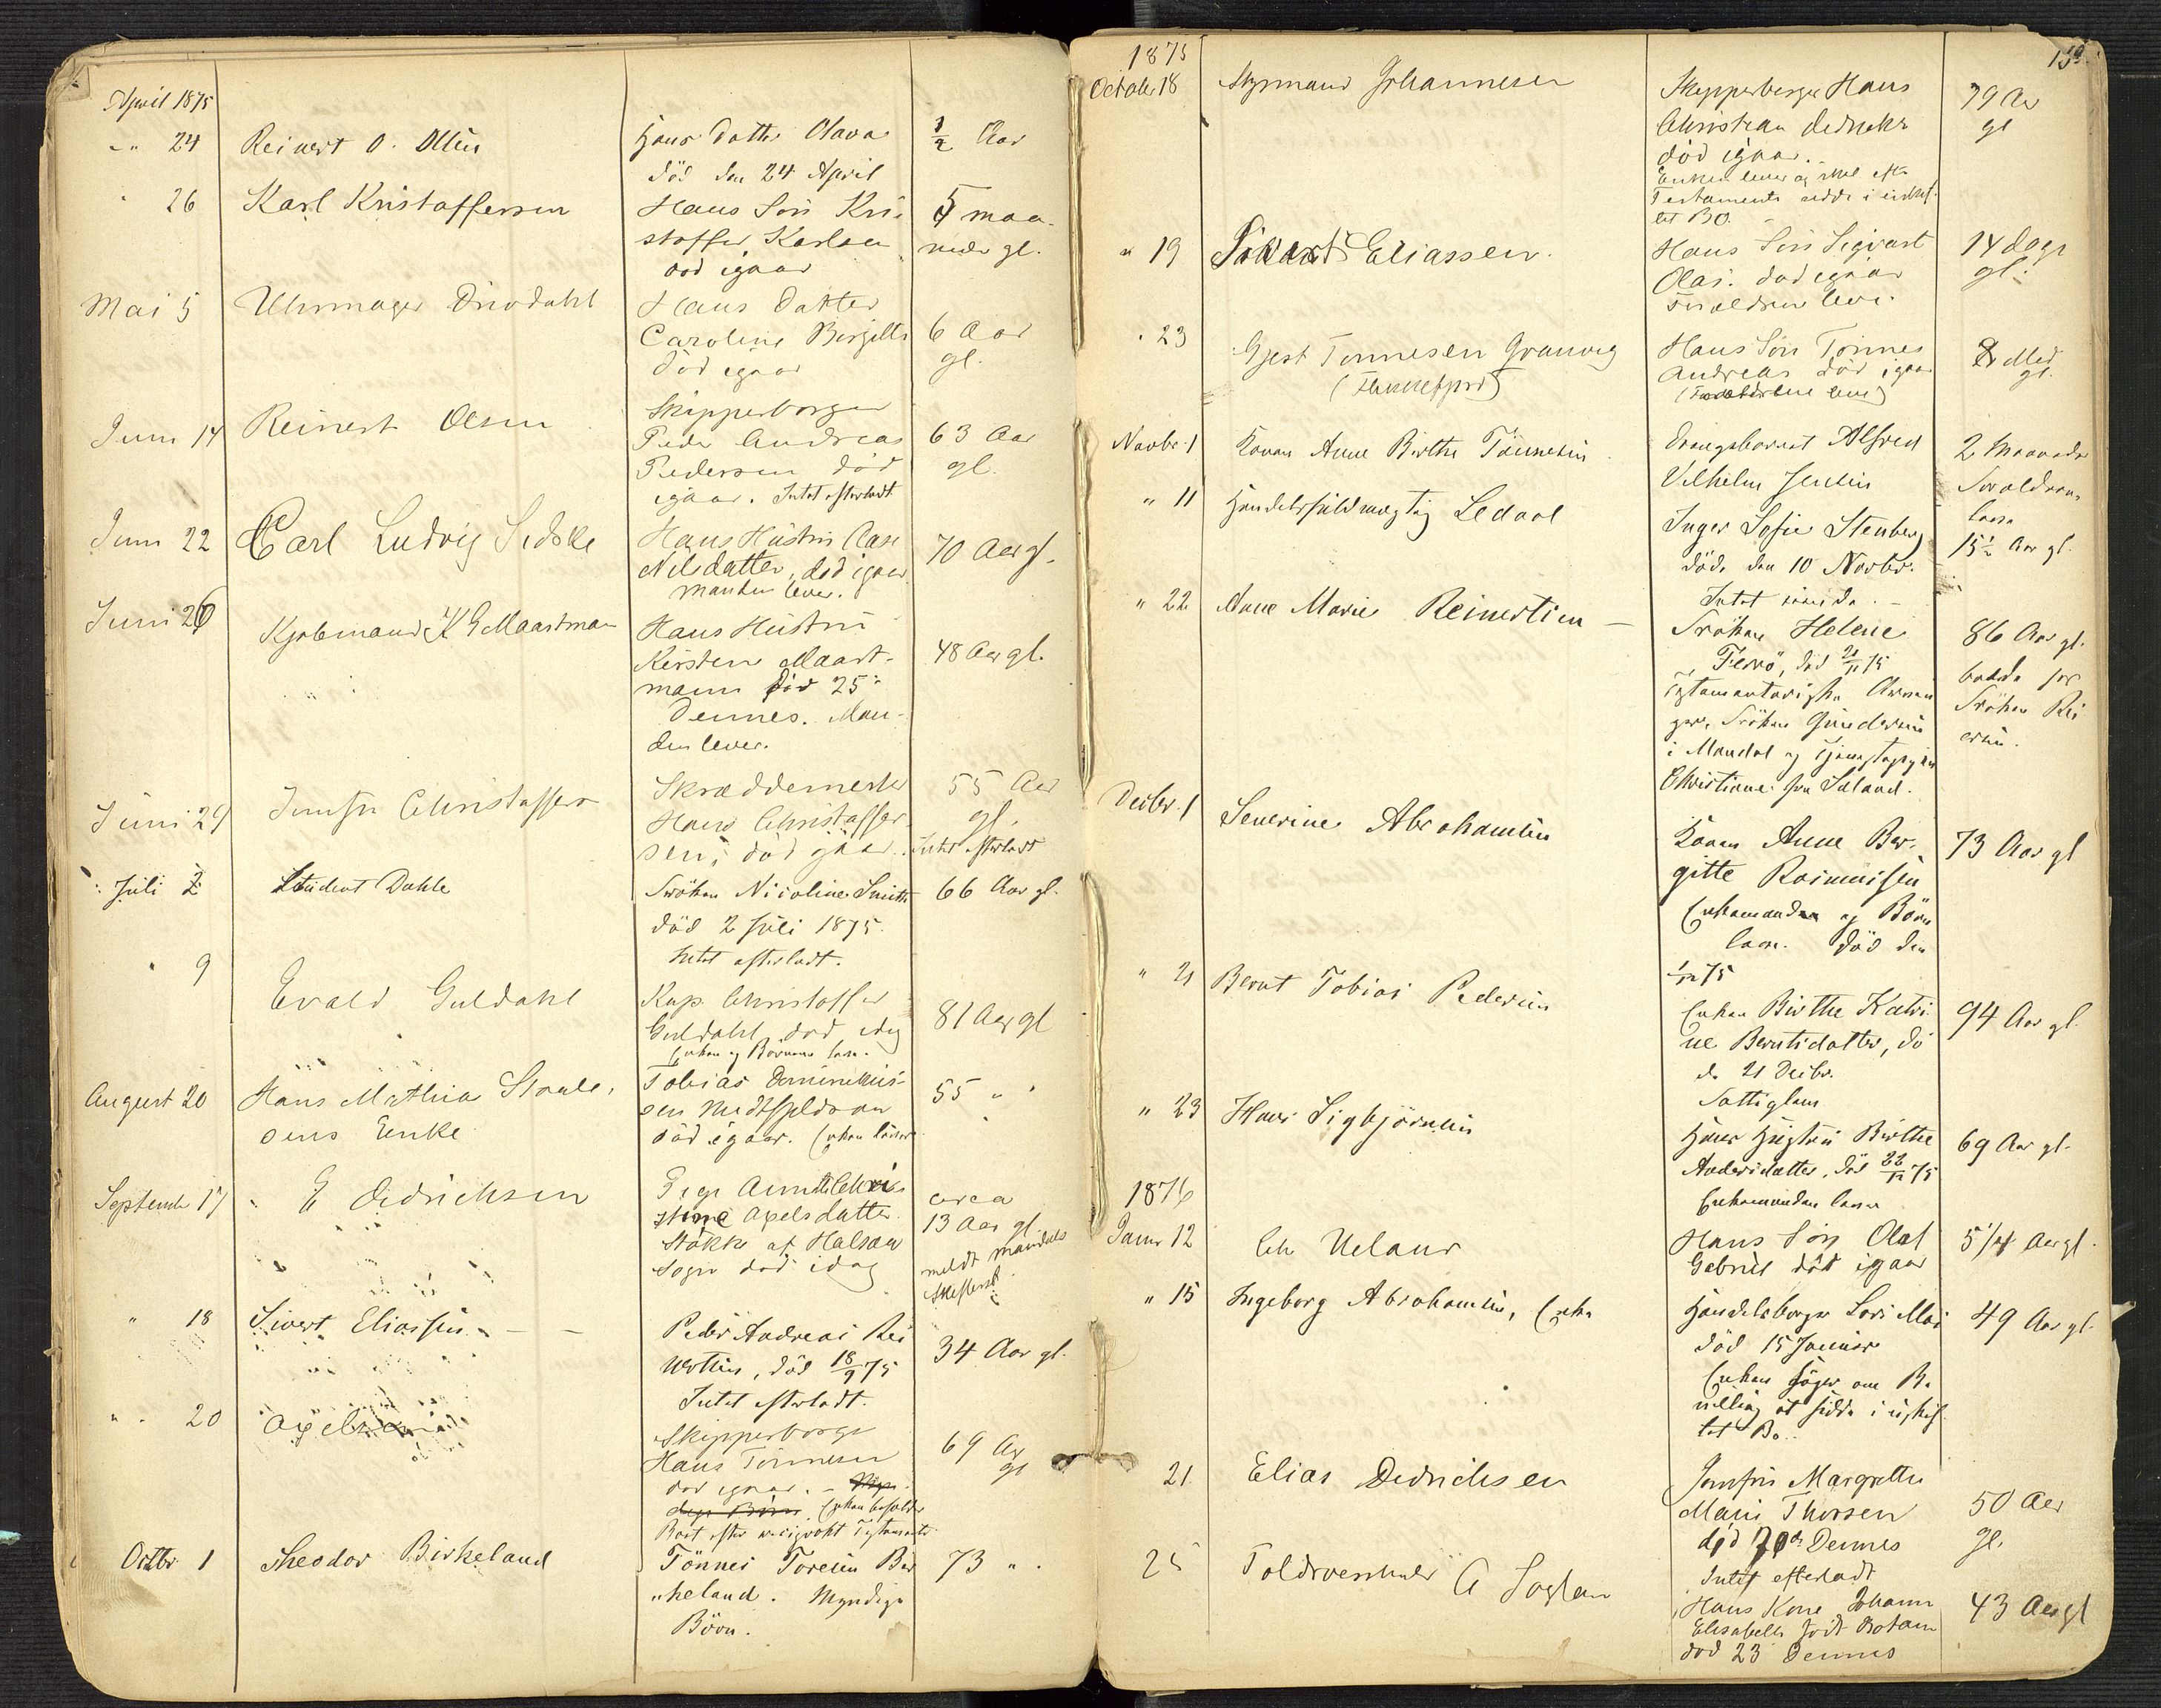 April 1875
" 24 Reinert O. Olsen Hans Datter Olava ½ Aar
død den 24 April
" 26 Karl Kristoffersen Hans Søn Kri- 5 maa-
stoffer Karlsen neder gl.
død igaar
Mai 5 Uhrmager Drivdahl Hans Datter
Caroline Bergitte 6 Aar
død igaar gl.
Juni 14 Reinert Olsen Skipperborger
Peder Andreas 63 Aar
Pedersen død gl.
igaar. Intet efterladt
Juni 22 Carl Ludvig Hans Hustru Aase 70 Aar gl.
Nilsdatter, død igaar
manden lever.
Juni 26 Kjøbmand K G Maartman Hans Hustru
Kirsten Maart- 48 Aar gl.
mann død 25.
Dennes. Man-
den lever.
Juni 29 Jomfru Christoffersen Skræddermester 55 Aar
Hans Christoffer- gl.
sen, død igaar. Intet efterladt
Juli 2 Student Dahle Frøken Nicoline Smith 66 Aar gl.
død 2 Juli 1875.
Intet efterladt.
" 9 Evald Guldahl Kap. Christoffer
Guldahl, død idag 81 Aar gl
Enken og Børnene leve.
August 20 Hans Mathias Staale- Tobias 55 " "
sens Enke
død igaar. Enken lever
Septembr 17 E Dedrichsen Pige circa
Axelsdatter 13 Aar gl.
Støkke af Halsaa meldt Mandals
Sogn død idag Skifteret
" 18 Sivert Eliassen - - Peder Andreas Rei
nertsen, død 18/9 75 34 Aar gl.
Intet efterladt.
" " 20 Axelsen Skipperborger
Hans Tønnesen 69 Aar
død igaar. - gl
Enken
Boet efter Testamente
Octbr 1 Theodor Birkeland Tønnes Toresen Bir 73 " "
keland. Myndige
Børn.
1875
October 18 Styrmand Johannesen Skipperborger Hans 79 Aar
Christian Dedriks gl
død igaar.
Enken lever og skal efter
Testamente sidde i uskif-
tet Bo.
" 19 Sivert Eliassen. Hans Søn Sigvart 14 dage
Olai. død igaar gl.
Foreldrene leve.
" 23 Gjest Tønnesen Granvig Hans Søn Tønnes 2 Mdr
(Flekkefjord) Andreas død igaar gl.
(Foreldrene leve)
Novbr. 1 Konen Anne Birthe Tønnesen Drengebarnet Alfred 2 Maaneder
Vilhelm Jensen Foreldrene
leve
" 11 Handelsfuldmægtig Ledaal Inger Sofie Stenberg 15½ Aar gl.
døde den 10 Novbr.
Intet
" 22 Anne Marie Reinertsen - Frøken Helene 86 Aar gl.
Ferrø, død 21/11 75 boede hos
Testamentariske Arvin Frøken Rei
ger, Frøken Gundersen
i Mandal og Tjenestepigen
Christiane fra Søland.
Decbr. 1 Severine Abrahamsen Konen Anne Ber- 73 Aar gl
gitte Rasmussen
Enkemanden og Børn
leve. død den
1/12 75
" 21 Bernt Tobias Pedersen Enken Birthe Katri 94 Aar gl.
ne Berntsdatter, dø
de 21 Decbr.
Fattiglem
" 23 Hans Sigbjørnsen Hans Hustru Birthe 69 Aar gl.
Andersdatter, død 22/12 75
Enkemanden lever
1876
Januar 12 Chr Ueland Hans Søn Olaf 5 1/4 Aar gl.
Gabriel død igaar
" 15 Ingeborg Abrahamsen, Enke Handelsborger Moi 49 Aar gl.
død 15 Januar
Enken søger om Be
villing at sidde i uskif
tet Bo.
21. Elias Dedrichsen Jomfru Margrethe
Marie Thorsen 50 Aar
død Dennes gl.
Intet efterladt
25 A Hans Kone Johanne 43 Aar gl
Elisabeth født
død 23 Dennes